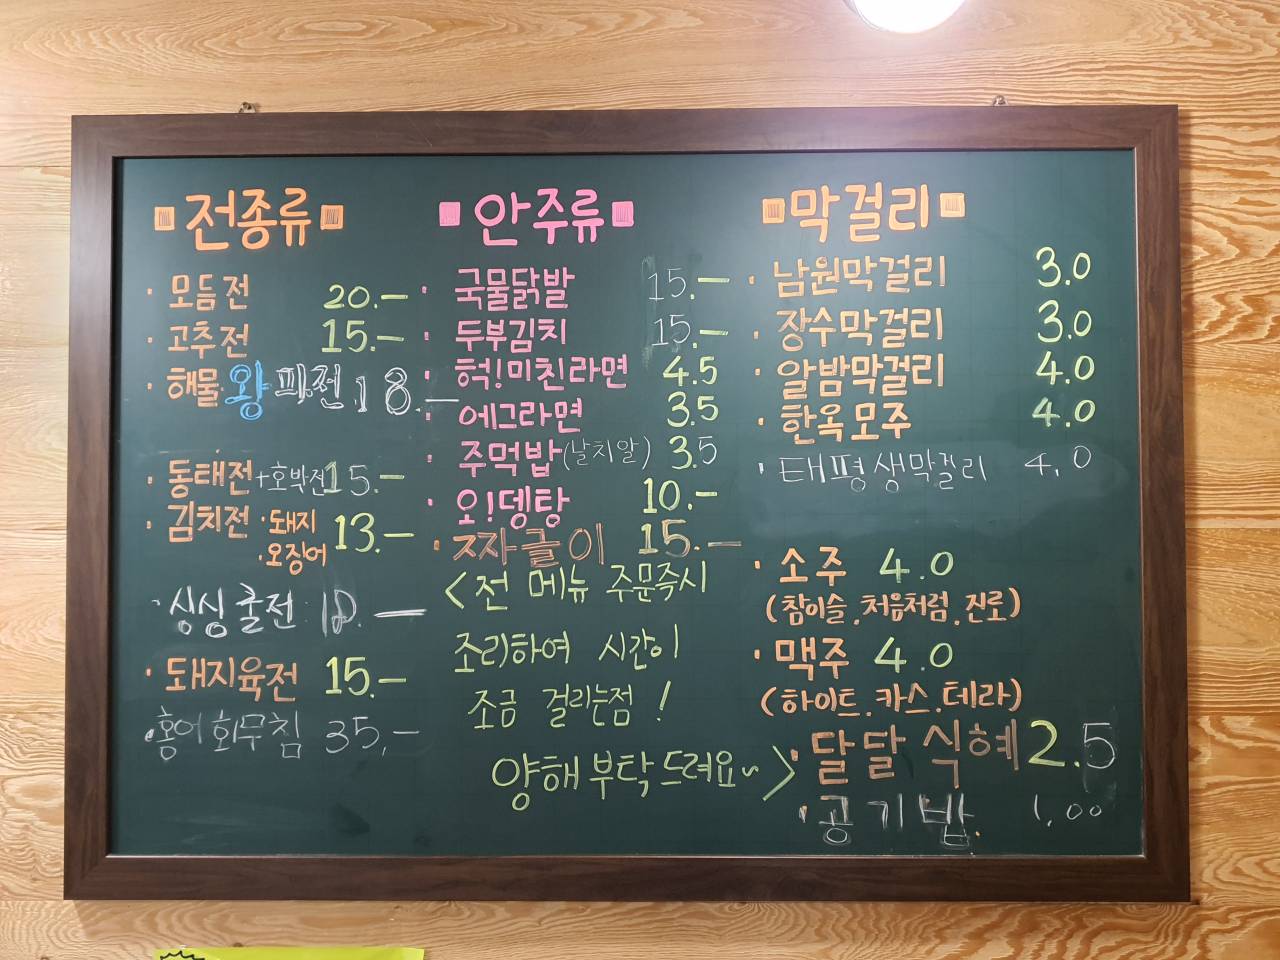 전종류
모듬전 20.-
고추전 15.-
해물 왕 파전 18.-
동태전+호박전 15.-
김치전 ·돼지 ·오징어 13.-
싱싱굴전
돼지육전 15.-
홍어회무침 35,-
안주류
국물닭발 15.-
두부김치 15.-
헉!미친라면 4.5
에그라면 3.5
주먹밥(날치알) 3.5
오!뎅탕 10.-
짜글이 15.-
<전 메뉴 주문즉시
조리하여 시간이
조금 걸리는점!
양해 부탁드려요~>
막걸리
남원막걸리 3.0
장수막걸리 3.0
알밤막걸리 4.0
한옥모주 4.0
태평생막걸리 4.0
소주 4.0
(참이슬.처음처럼.진로)
맥주 4.0
(하이트.카스.테라)
달달식혜 2.5
공기밥 1.00